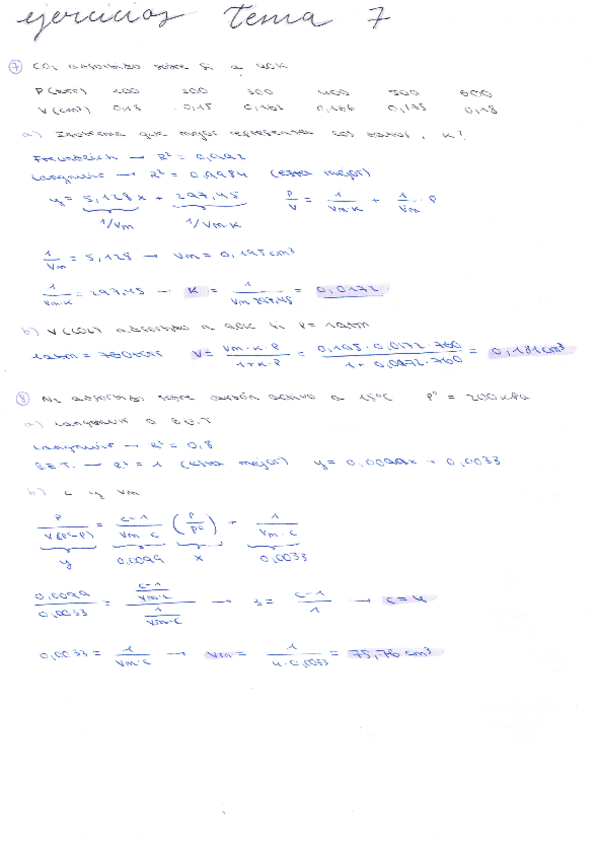 ejercicios tema 7
7 CO₂ adsorbido sobre Si a
P (torr) 100 200 300 400 500 600
V (cm³) 0,13 0,15 0,162 0,166 0,175 0,18
a) Isoterma que mejor representa los datos, K?
Freundlich → R² = 0,992
Langmuir → R² = 0,9984 (esta mejor)
y = 5,128x + 297,45 P/V = 1/Vm·K + 1/Vm · P
1/Vm 1/Vm·K
1/Vm = 5,128 → Vm = 0,195 cm³
1/Vm·K = 297,45 → K = 1/Vm·297,45 = 0,0172
b) V (CO₂) adsorbido a si P = 1atm
1atm = 760torr V = Vm·K·P/1+K·P = 0,195·0,0172·760/1+0,0172·760 = 0,181cm³
8 N₂ adsorbido sobre carbón activo a 15°C P° = 200kPa
a) Langmuir o B.E.T
Langmuir → R² = 0,8
B.E.T. → R² = 1 (esta mejor) y = 0,0099x + 0,0033
b) C y Vm
P/V(P°-P) = C-1/Vm·C (P/P°) + 1/Vm·C
y 0,0099 x 0,0033
0,0099/0,0033 = C-1/Vm·C / 1/Vm·C → 3 = C-1/1 → C = 4
0,0033 = 1/Vm·C → Vm = 1/4·0,0033 = 75,76 cm³